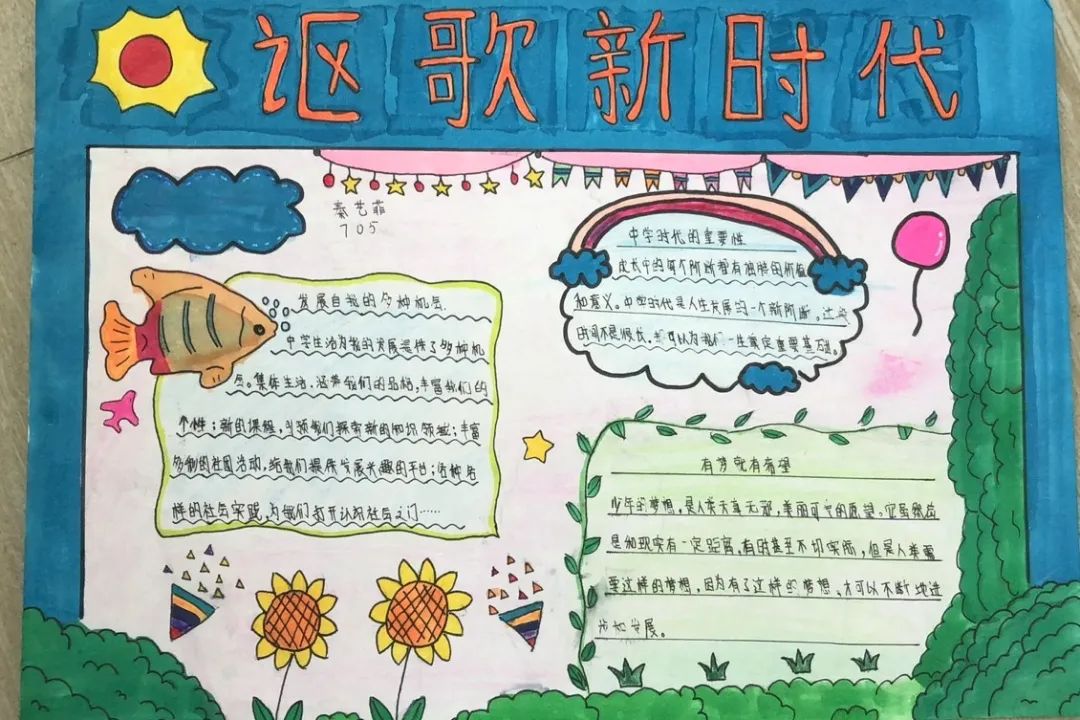 讴歌新时代
秦艺菲
705
发展自我的多种机会
中学生活为我的发展提供了多种机
会。集体生活，涵养我们的品格，丰富我们的
个性；新的课程，引领我们探索新的知识领域；丰富
多彩的社团活动，给我们提供发展兴趣的平台；各种各
样的社会实践，为我们打开认识社会之门……
中学时代的重要性
成长中的每个阶段都有独特的价值
和意义。中学时代是人生发展的一个新阶段，这段
时间不是很长，却可以为我们一生奠定重要基础。
有梦就有希望
少年的梦想，是人类天真无邪，美丽可爱的愿望。它虽然总
是和现实有一定距离，有时甚至不切实际，但是人类需
要这样的梦想，因为有了这样的梦想，才可以不断地进
步和发展。